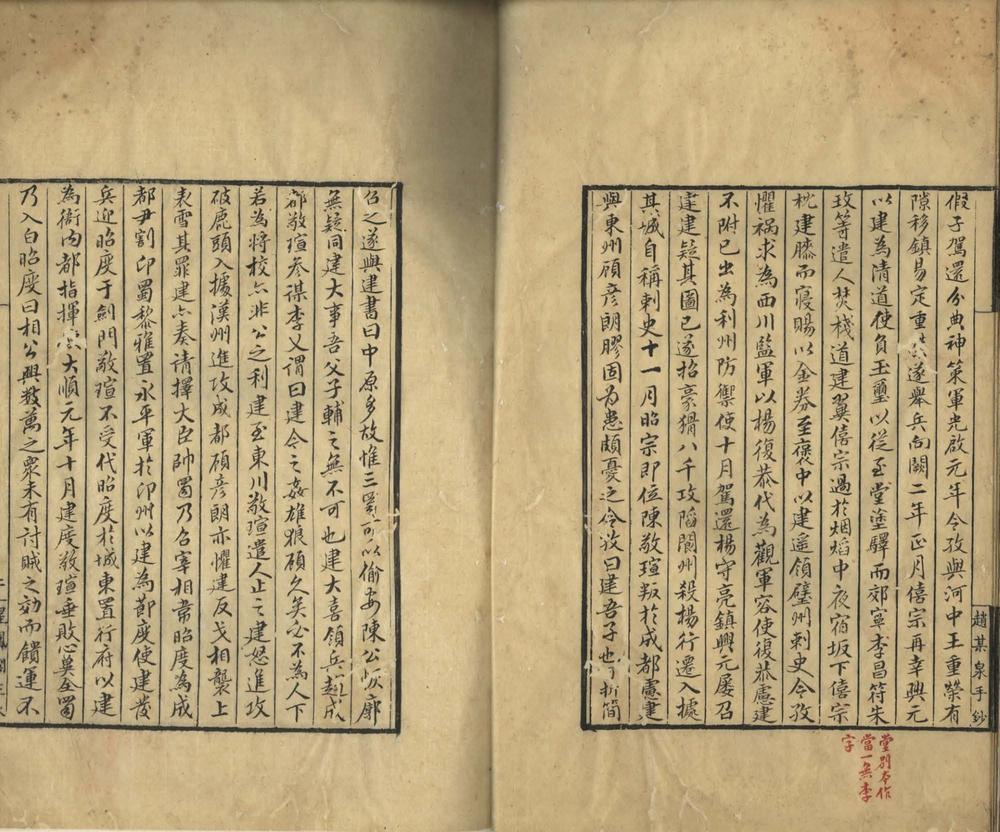 趙某泉手鈔
假子駕還分典神策軍光啟元年令孜與河中王重榮有
隙移鎮易定重榮遂舉兵向闕二年正月僖宗再幸興元
以建為清道使負玉璽以從至堂塗驛而邠寧李昌符朱
玫等遣人焚棧道建翼僖宗過於烟熖中夜宿坂下僖宗
枕建膝而寢賜以金券至褒中以建遥領璧州刺史令孜
懼禍求為西川監軍以楊復恭代為觀軍容使復恭慮建
不附已出為利州防禦使十月駕還楊守亮鎮興元屡召
建建疑其圖已遂招豪猾八千攻䧟閬州殺楊行遷入據
其城自稱刺史十一月昭宗即位陳敬瑄叛於成都慮建
與東州顧彥朗膠固為患頗憂之令孜曰建吾子也折簡
召之遂與建書曰中原多故惟三蜀可以偷安陳公恢廓
無疑同建大事吾父子輔之無不可也建大喜領兵赴成
都敬瑄叅謀李乂謂曰建令之姦雄狼顧久矣必不為人下
若為將校亦非公之利建至東川敬瑄遣人止之建怒進攻
破鹿頭入據漢州進攻成都顧彥朗亦懼建反戈相襲上
表雪其罪建亦奏請擇大臣帥蜀乃召宰相韋昭度為成
都尹割卬蜀黎雅置永平軍於卬州以建為節度使建發
兵迎昭度于劍門敬瑄不受代昭度於城東置行府以建
為衙內都指揮大順元年十月建度敬瑄垂敗心莫全蜀
乃入白昭度曰相公興數萬之衆未有討賊之効而饋運不
堂别本作
當一無李
字